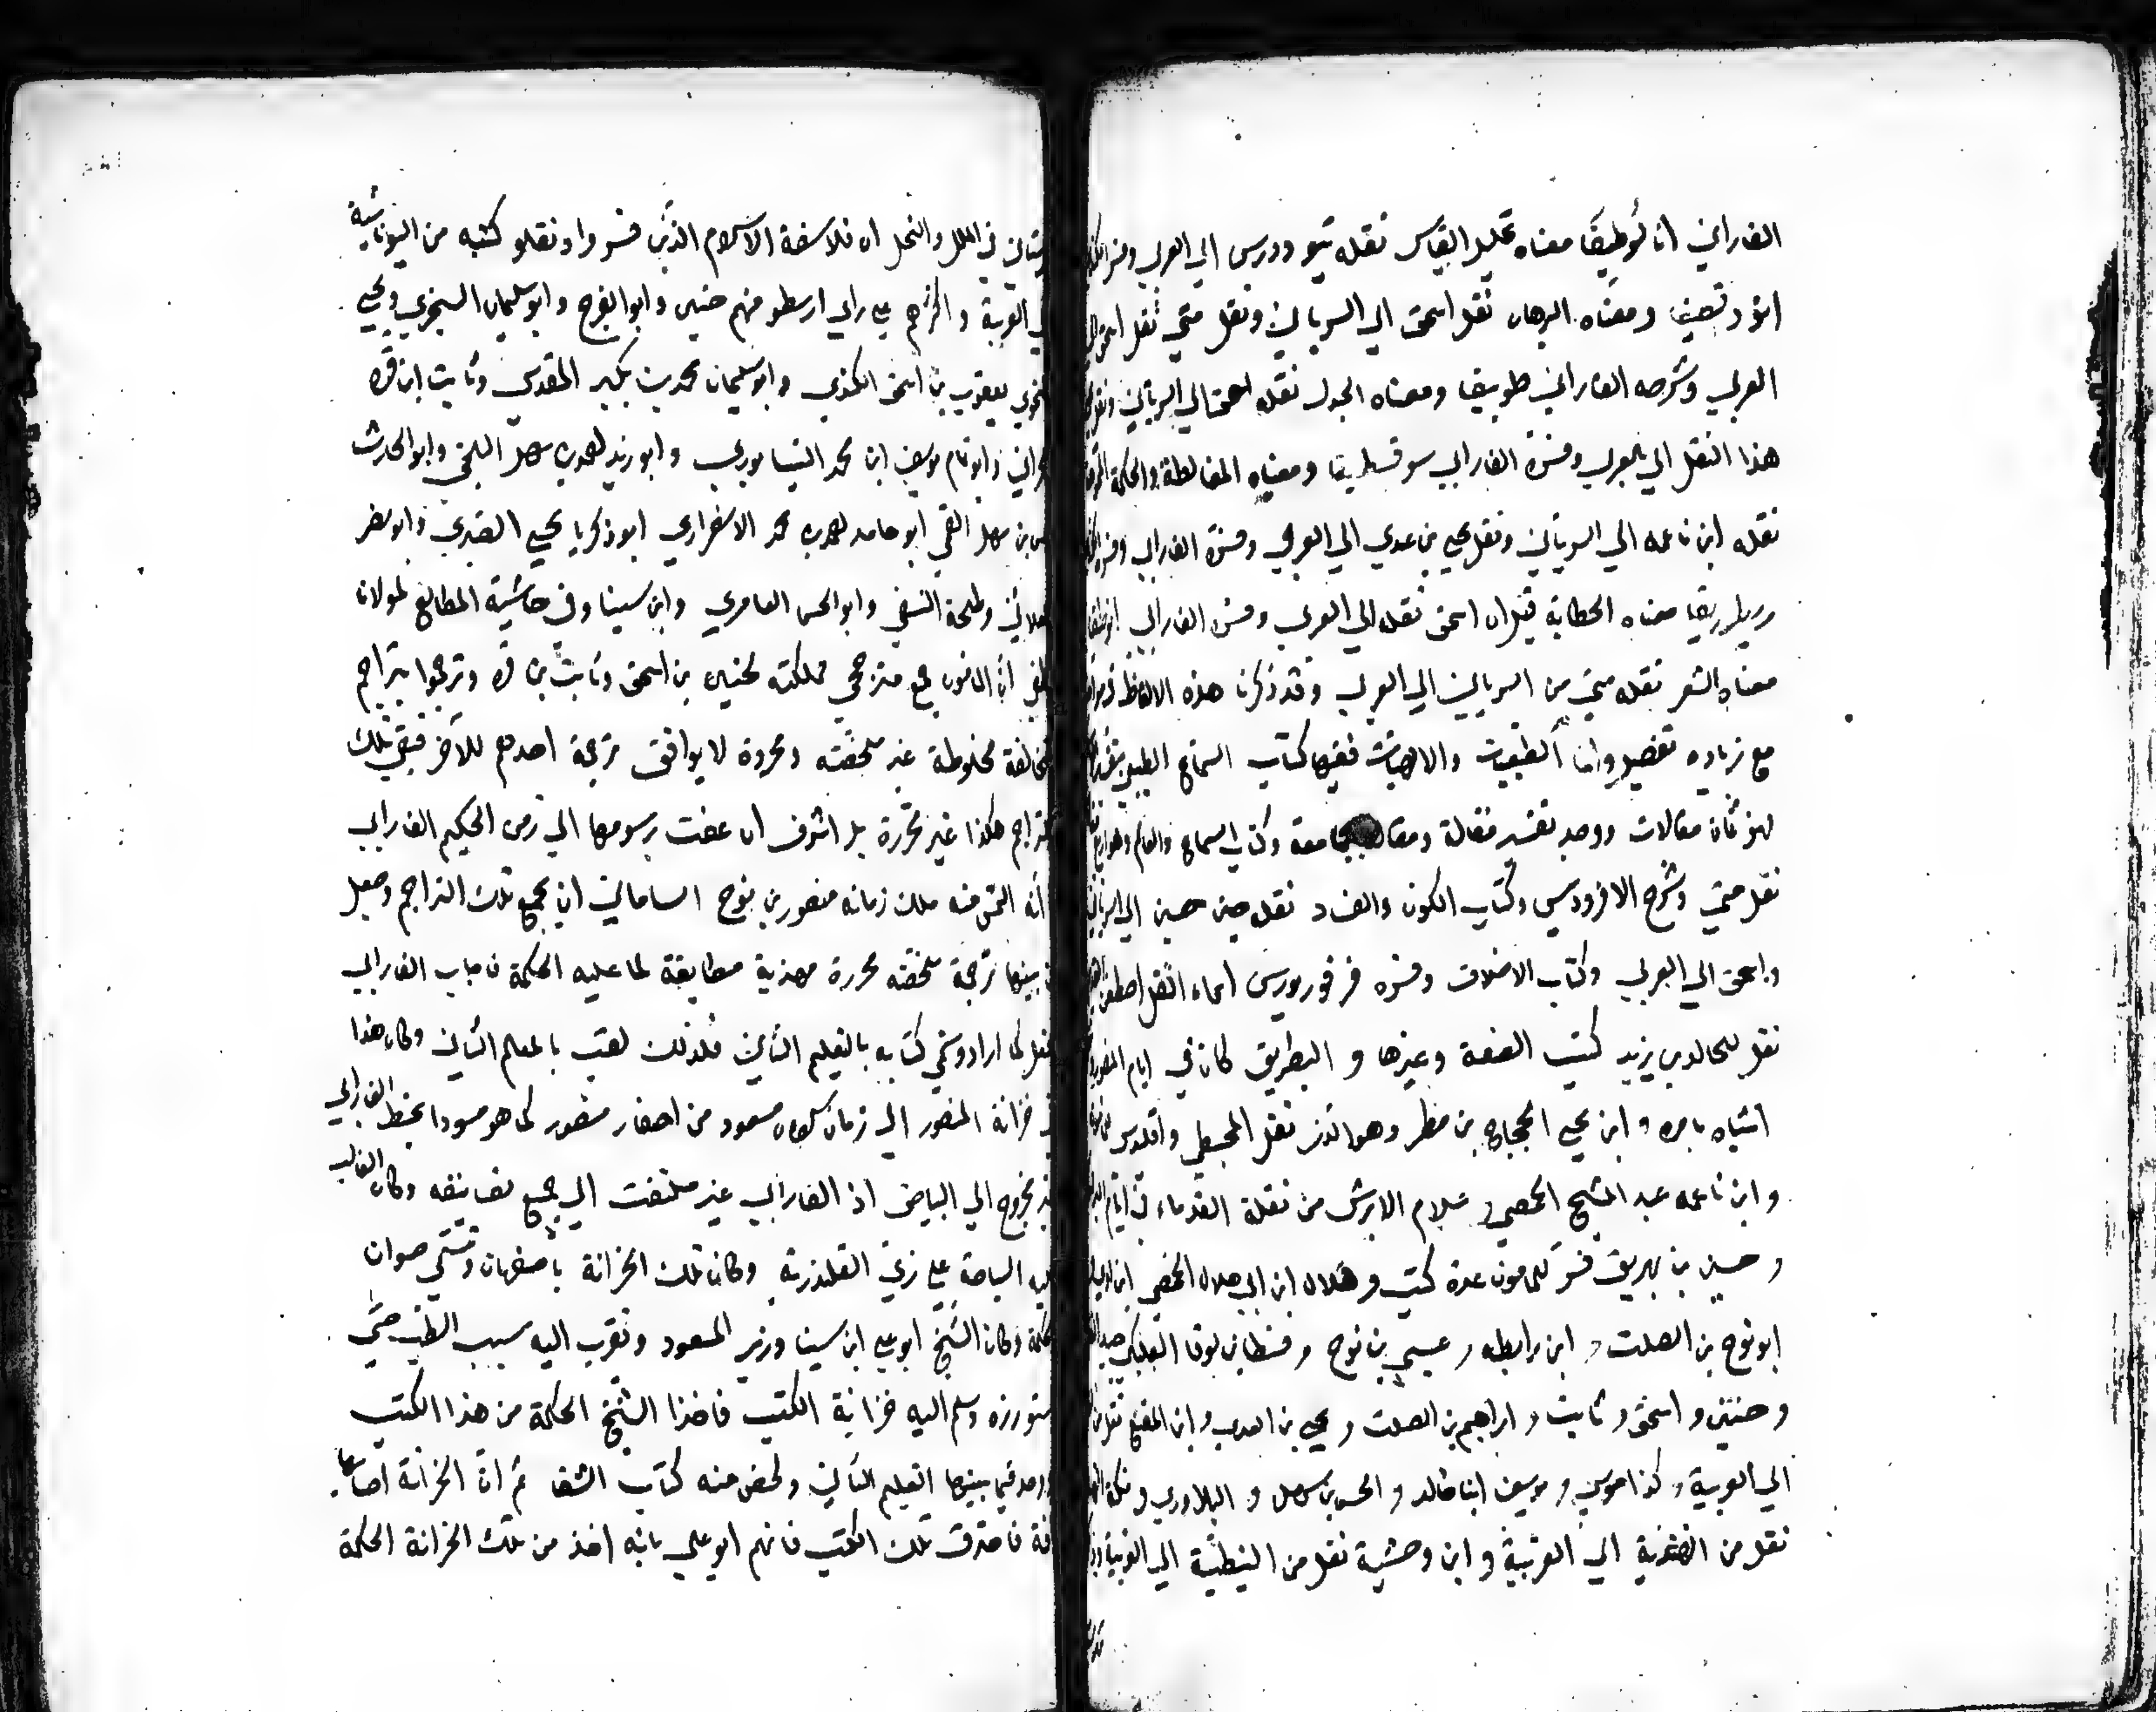 الفارابي انالوطيقا معناه تحليل القياس نقله تيودورس الي العربي وفسره الكندي
ابودقطيقا ومعناه البرهان نقل اسحق الي السرياني ونقل متي نقل اسحق الي
العربي وشرحه الفارابي طوبيقا ومعناه الجدل نقله اسحق الي السرياني ونقل يحيي
هذا النقل الي العربي وفسره الفارابي سوفسطيقا ومعناه المغالطة والحكمة المموهة
نقله ابن ناعمه الي السرياني ونقل يحيي بن عدي الي العربي وفسره الفارابي وفسره الكندي
ريطوريقا معناه الخطابة قيل ان اسحق نقله الي العربي وفسره الفارابي
معناه الشعر نقله متي من السرياني الي العربي وقد ذكرنا هذه الالفاظ في مواضعها
مع زياده تفصيل واما الطبيعيات والالهيات ففيها كتاب السماع الطبيعي
لهو ثمان مقالات ووجد تفسير مقالة ومقالة جامعة وكتاب السماء والعالم وهو اربع
نقل متي وشرح الافرودسي وكتاب الكون والفساد نقله حنين الي السرياني
واسحق الي العربي وكتاب الاخلاق وفسره فرفوريورس اسماء النقل اصطفن
نقل لخالد بن يزيد كتب الصنعة وغيرها و البطريق كان في ايام المنصور
اشياء بامره و ابن يحيي الحجاج بن مطر وهو الذي نقل المجسطي واقليدس
و ابن ناعمه عبد المسيح الحمصي و سلام الابرش من نقلة القدماء في ايام البرامكة
و حسين بن بهريق فسر للمامون عدة كتب و هلال ابن ابي هلال الحمصي
ابو نوح بن الصلت و ابن رابطه و عيسي بن نوح و قسطا بن لوقا البعلبكي
و حنين و اسحق و ثابت و ابراهيم بن الصلت و يحيي بن العدي و ابن المقفع نقل من
الي العربية و كذا موسي و يوسف ابنا خالد و الحسن بن سهل و البلاذري و
نقل من الهندية الي العربية و ابن وحشية نقل من النبطية الي العربية
في الملل والنحل ان فلاسفة الاسلام الذين فسروا ونقلو كتبه من اليونانية
الي العربية و اكثرهم علي راي ارسطو منهم حنين وابو الفرج وابو سليمان السنجري ويحيي
النحوي يعقوب بن اسحق الكندي وابو سليمان محمد بن بكير المقدسي وثابت ابن قره
الحراني وابو تمام يوسف ابن محمد النيسابوري وابو زيد احمد بن سهل البلخي وابو الحرث
الحسن بن سهل القمي ابو حامد احمد بن محمد الاسفراري ابو ذكريا يحيي الصيدي وابو نصر
وطلحة النسفي وابو الحسن العامري وابن سينا وفي حاشية المطالع لمولانا
لطفي ان المامون جمع مترجمي مملكته كحنين بن اسحق وثابت بن قره وترجموا بتراجم
مخالفة مخلوطة غير ملخصة ومحررة لا يوافق ترجمة احدهم للاخر فبقي تلك
التراجم هكذا غير محررة بل اشرف ان عفت رسومها الي زمن الحكيم الفارابي
ثم انه التمس منه ملك زمانه منصور بن نوح الساماني ان يجمع تلك التراجم وجعل
من بينها ترجمة ملخصة محررة مهذبة مطابقة لما عليه الحكمة فاجاب الفارابي
وفعل كما اراد وسمي كتابه بالتعليم الثاني فلذلك لقب بالمعلم الثاني وكان هذا
في خزانة المنصور الي زمان السلطان مسعود من احفاد منصور كما هو مسودا بخط الفارابي
غير مخروج الي البياض اذ الفارابي غير ملتفت الي جمع تصانيفه وكان الغالب
عليه السياحة علي زي القلندرية وكان تلك الخزانة باصفهان وتسمي صوان
الحكمة وكان الشيخ ابو علي ابن سينا وزير المسعود وتقرب اليه سبب الطب حتي
استوزره وسلم اليه خزانة الكتب فاخذا الشيخ الحكمة من هذا الكتب
ووجد فيما بينها التعليم الثاني ولخص منه كتاب الشفا ثم ان الخزانة اصابها
افة فاحترق تلك الكتب فاتهم ابو علي بانه اخذ من تلك الخزانة الحكمة